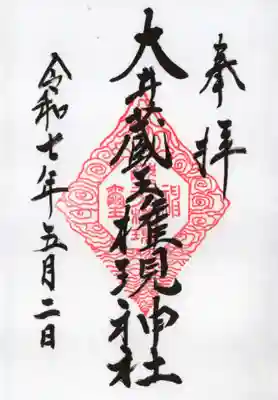 奉拝
大井蔵王権現神社
令和七年五月二日